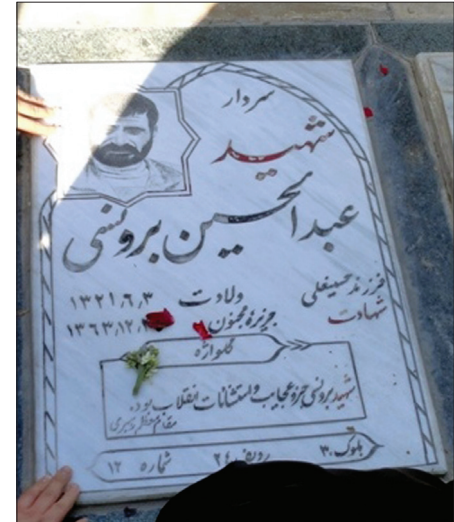 سردار
شهید
عبدالحسین برونسی
فرزند حسینعلی
ولادت ۱۳۲۱٫۶٫۳
شهادت جزیره مجنون ۱۳۶۳٫۱۲٫
گلواژه
شهید برونسی جزو عجایب و استثنائات انقلاب بوده
مقام معظم رهبری
بلوک ۳۰ ردیف ۲۴ شماره ۱۲